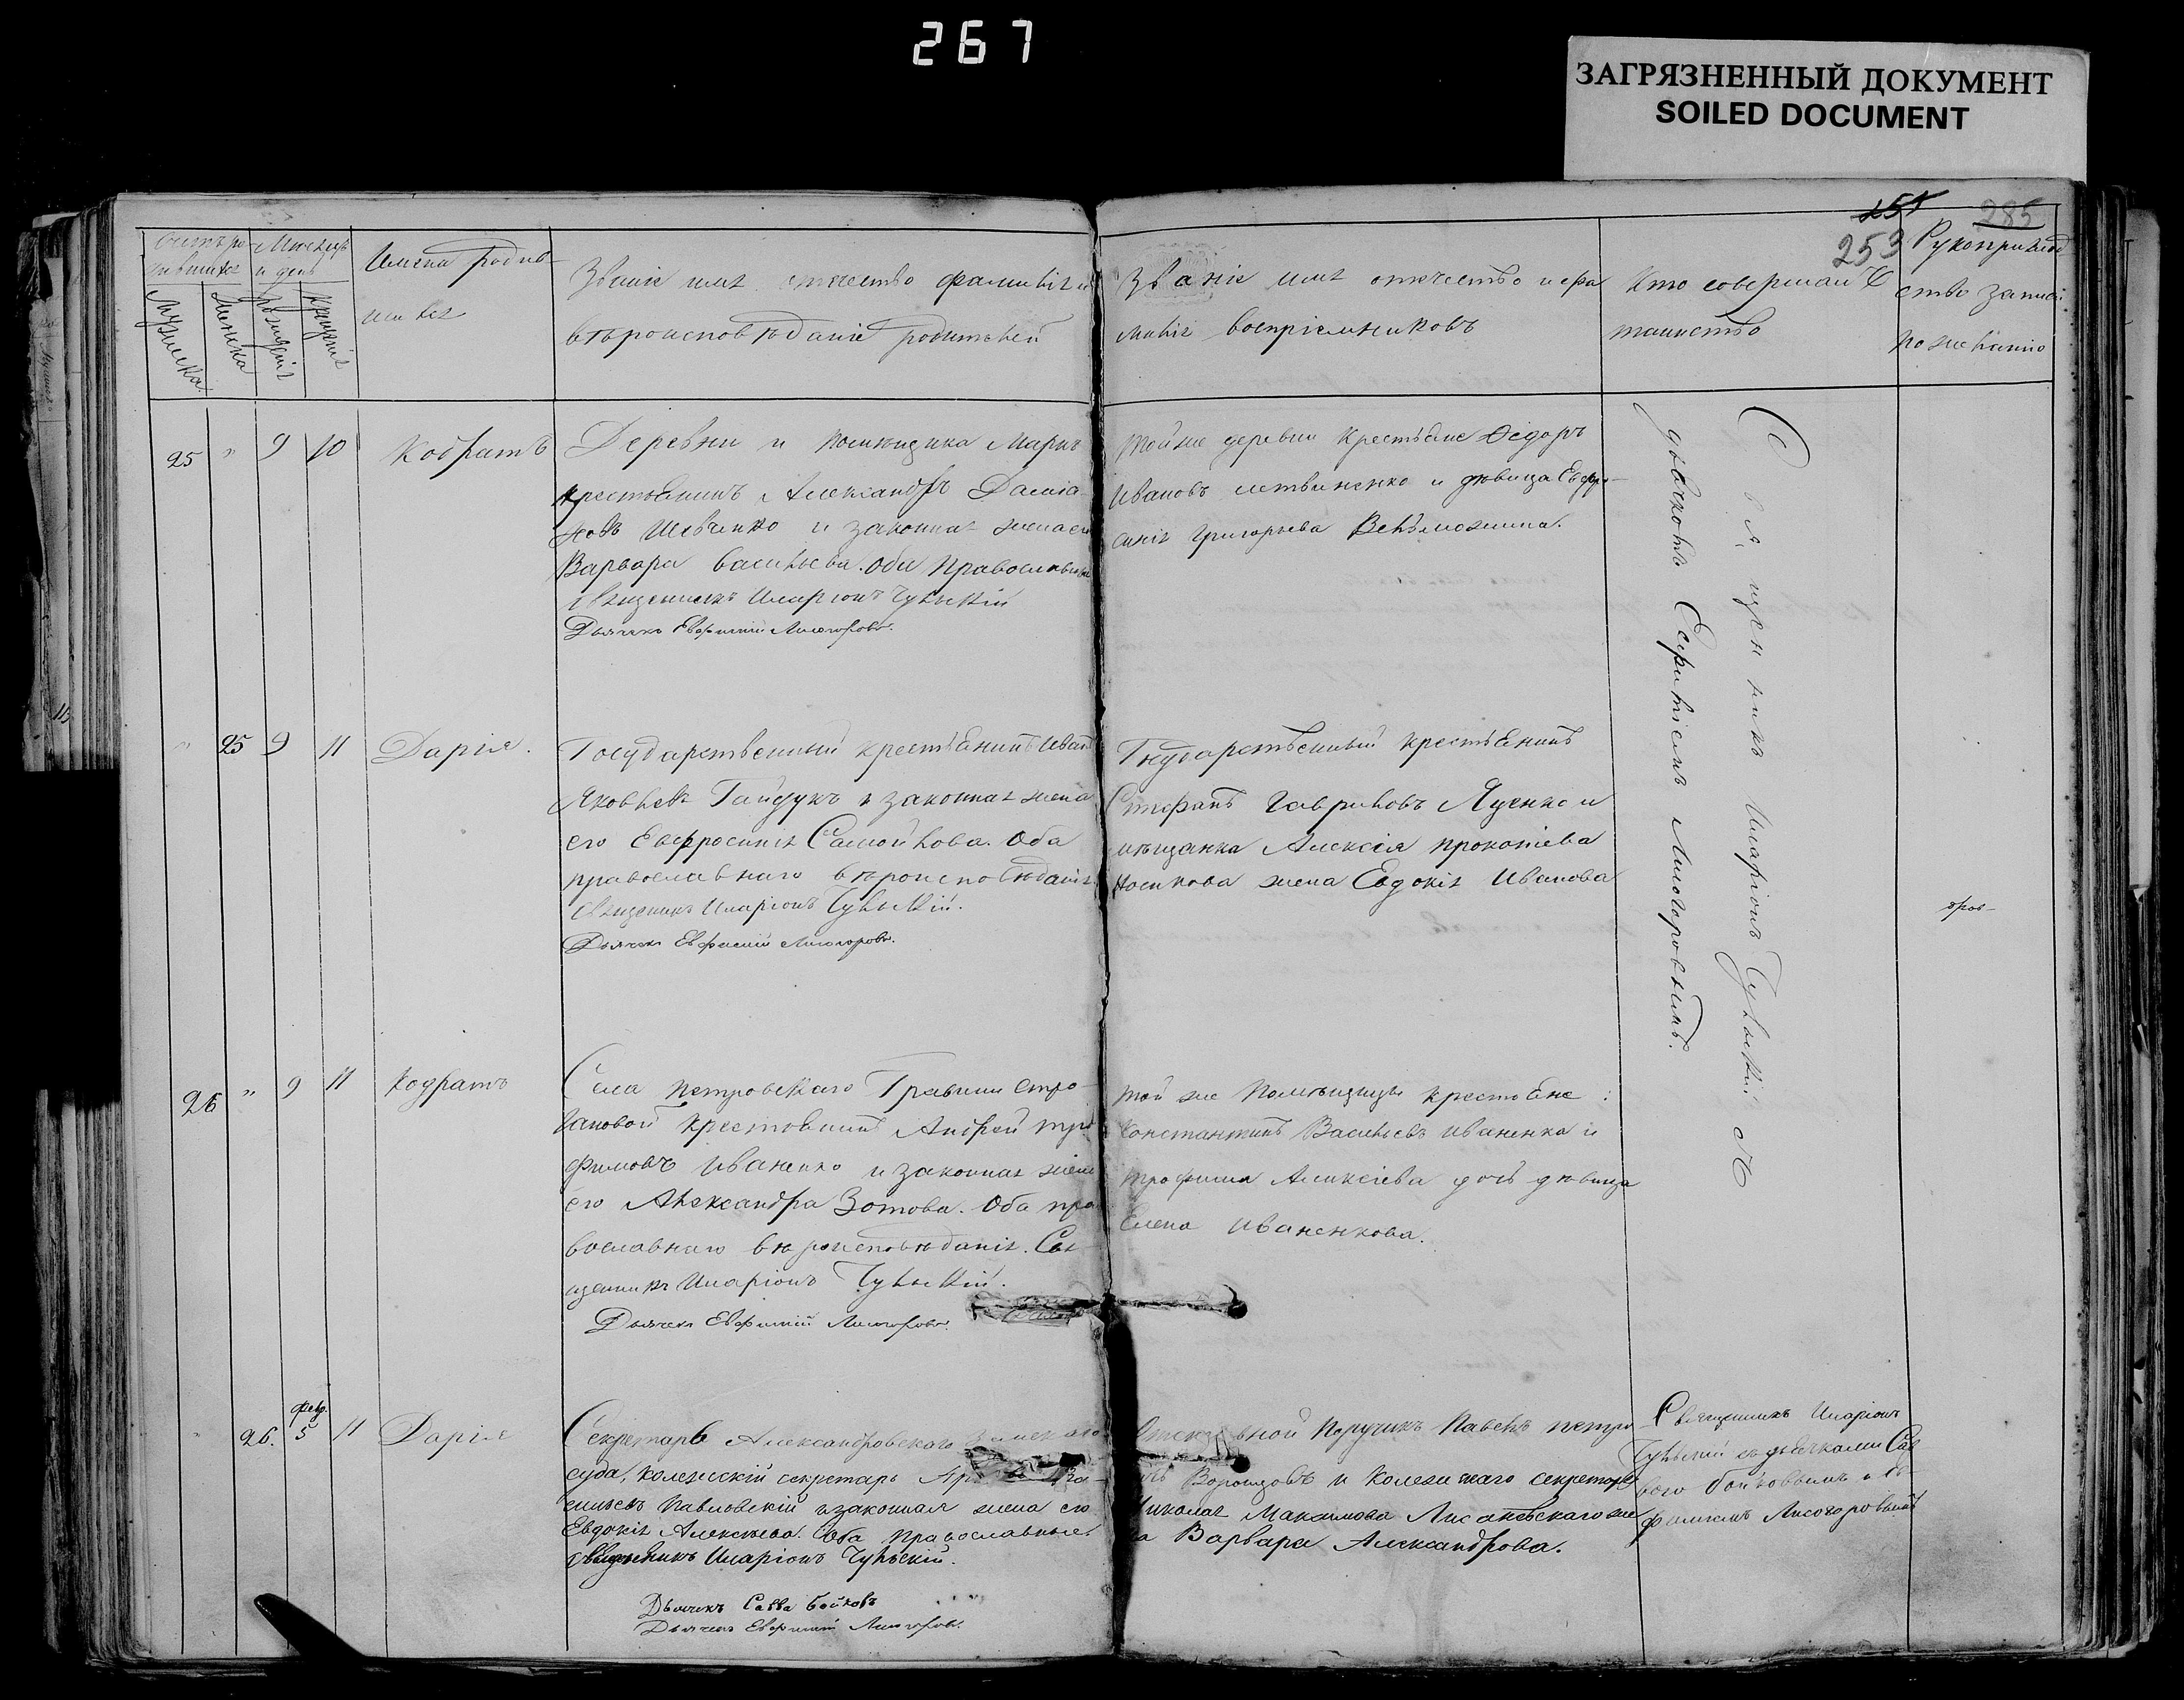 267
ЗАГРЯЗНЕННЫЙ ДОКУМЕНТ
SOILED DOCUMENT
285
253
Имена родив
шихся
Званіе имя отчество фамилія и
вѣроисповѣданіе родителей
Званіе имя отчество и фа
милія воспріемниковъ
Кто совершалъ
таинство
Рукоприклад
ство записи
по желанію
Мѣсяцъ
и день
рожденія
крещенія
25 " 9 10 Кодратъ
Деревни и помѣщика Марка
крестьянинъ Александръ Даміа
новъ Шевченко и законная жена его
Варвара Васильева. Оба Православные
Священникъ Иларіонъ Чульскій
Дьячекъ Евфимій Лисогоровъ.
Тойже деревни крестьяне Ѳедоръ
Ивановъ Литвиненко и дѣвица Евфро-
синія Григорьева Вельможина.
Священникъ Иларіонъ Чульскій съ
дьячкомъ Евфиміемъ Лисогоровымъ.
" 25 9 11 Дарія.
Государственный крестьянинъ Иванъ
Яковлевъ Гайдукъ и законная жена
его Евфросинія Самойлова. Оба
православнаго вѣроисповѣданія
Священникъ Иларіонъ Чульскій.
Дьячекъ Евфимій Лисогоровъ.
Государственный крестьянинъ
Стефанъ Гавриловъ Яценко и
мѣщанка Алексія Прокопіева
Носикова жена Евдокія Иванова
26 " 9 11 Кодратъ
Села Петровскаго Графини Стро-
гановой крестьянинъ Андрей Тро
фимовъ Иваненко и законная жена
его Александра Зотова. Оба пра
вославнаго вѣроисповѣданія. Свя
щенникъ Иларіонъ Чульскій.
Дьячекъ Евфимій Лисогоровъ.
той же помѣщицы крестьяне:
Константинъ Васильевъ Иваненко и
Трофима Алексіева дочь дѣвица
Елена Иваненкова.
" 26. февр. 5 11 Дарія
Секретарь Александровскаго Земскаго
суда, Колежскій секретарь Ва-
сильевъ Павловскій и законная жена его
Евдокія Алексѣева. Оба православные
Священникъ Иларіонъ Чульскій.
Дьячекъ Савва Бойковъ
Дьячекъ Евфимій Лисогоровъ.
Поручикъ Павелъ Петро
Воронцовъ и Колежскаго секретаря
Николая Максимова Лисаневскаго же
на Варвара Александрова.
Священникъ Иларіонъ
Чульскій съ дьячками Сав
вою Бойковымъ и Ев-
фиміемъ Лисогоровымъ